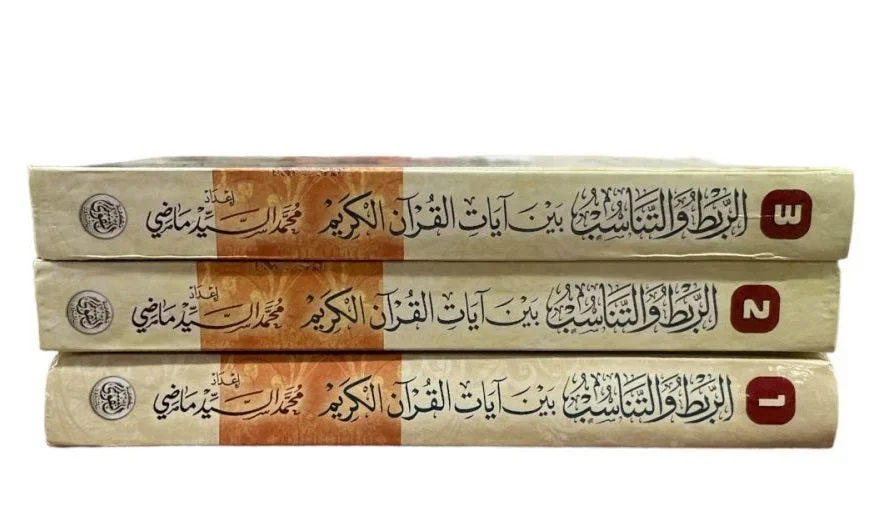 3 الرَّبْطُ وَالتَّنَاسُبُ بَيْنَ آيَاتِ الْقُرْآنِ الْكَرِيمِ إعْدَادْ مُحَمَّد السَّيِّد مَاضِي
2 الرَّبْطُ وَالتَّنَاسُبُ بَيْنَ آيَاتِ الْقُرْآنِ الْكَرِيمِ إعْدَادْ مُحَمَّد السَّيِّد مَاضِي
1 الرَّبْطُ وَالتَّنَاسُبُ بَيْنَ آيَاتِ الْقُرْآنِ الْكَرِيمِ إعْدَادْ مُحَمَّد السَّيِّد مَاضِي